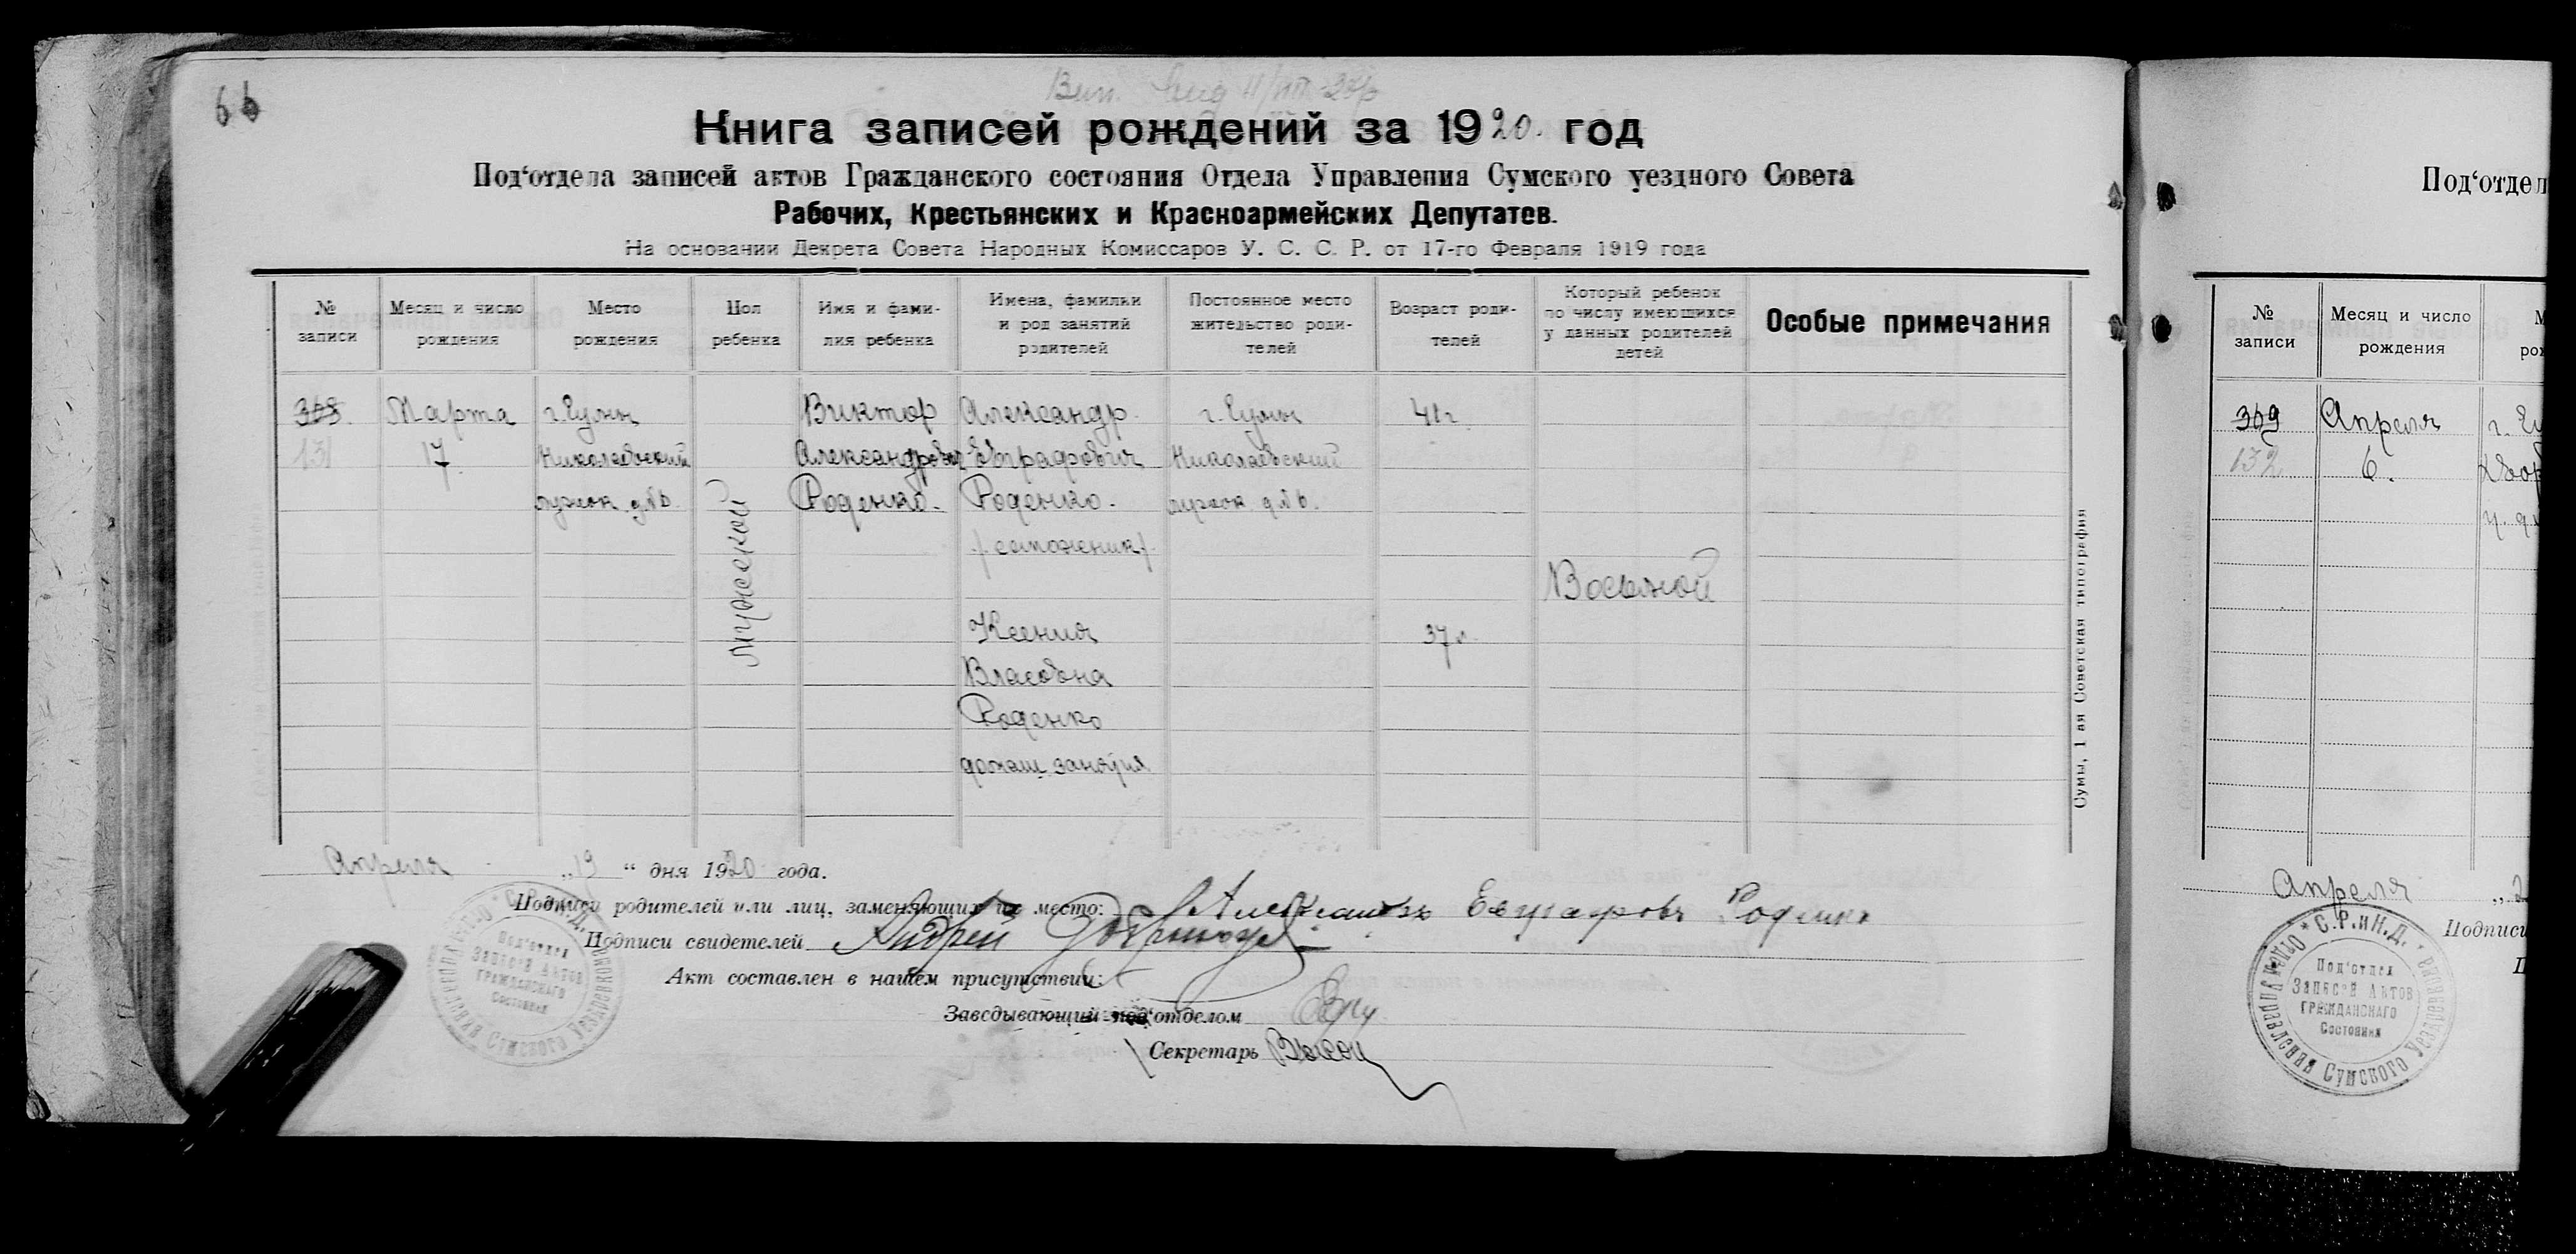 66
Книга записей рождений за 1920. год
Под‘отдела записей актов Гражданского состояния Отдела Управления Сумского уездного Совета
Рабочих, Крестьянских и Красноармейских Депутатов.
На основании Декрета Совета Народных Комиссаров У. С. С. Р. от 17-го Февраля 1919 года
№ записи
Месяц и число рождения
Место рождения
Пол ребенка
Имя и фами-
лия ребенка
Имена, фамилии
и род занятий
родителей
Постоянное место
жительство роди-
телей
Возраст роди-
телей
Который ребенок
по числу имеющихся
у данных родителей
детей
Особые примечания
368.
131
Марта
17
г. Сумы
Николаевский
лужок д. № 6.
Мужской
Виктор
Александрович
Роденко.
Александр
Евграфович
Роденко.
/сапожник/.
Ксения
Власовна
Роденко
домаш. занятия
г. Сумы
Николаевский
лужок д № 6.
41 г.
37 г.
Восьмой
Сумы, 1 ая Советская типография
Апреля „19“ дня 1920 года.
Подписи родителей или лиц, заменяющих их место: Александр Евграфовъ Роденко
Подписи свидетелей Андрей
Акт составлен в нашем присутствии:
Заведывающий под‘отделом
Секретарь
Под‘отдел
Записей Актов
Гражданского
Состояния
Под‘отдел
№ записи
Месяц и число
рождения
369
132
Апреля
6.
Апреля „2
Подписи
С.Р.иН.Д. Отдел Управления Сумского Уездн
Под‘отдел
Записей Актов
Гражданского
Состояния